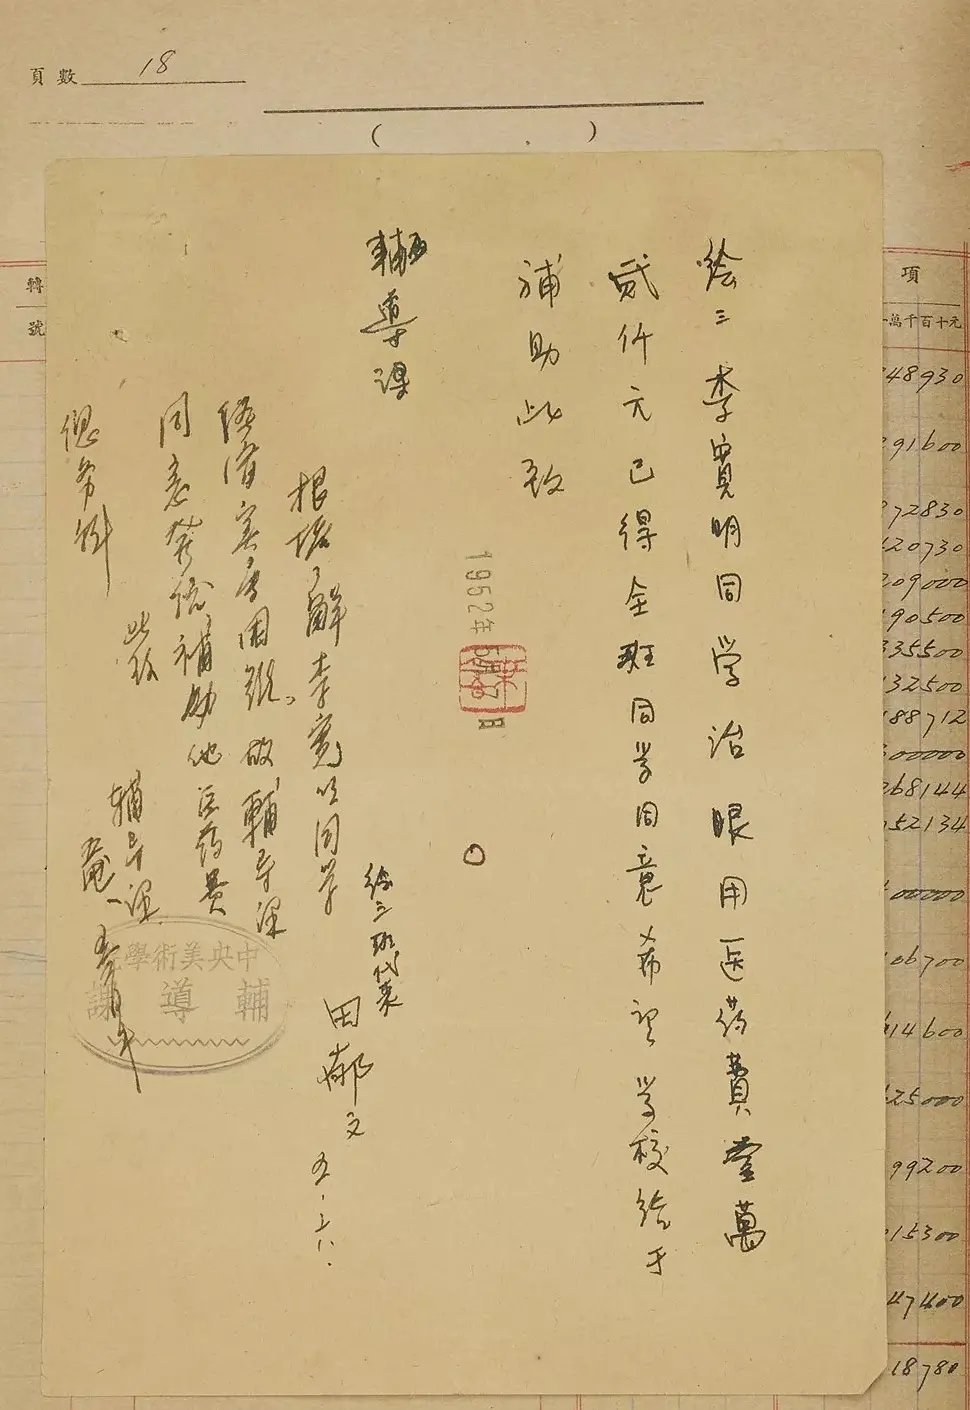 頁數 18
( )
绘三 李寬明同学治眼用医药費壹萬
貳仟元已得全班同学同意希望 学校给于
補助此致
輔导課
绘三班代表
田郁文 五.十六.
1952年5月17日
根据了解李寬明同学
经济实在困难、故輔导课
同意发给補助他医药費
此致
总务科
辅导课
中央美術學院
輔導課
轉
號
項
萬千百十元
48930
91600
72830
20730
09000
90500
35500
32500
88712
00000
68144
52134
00000
06700
14600
25000
99200
15300
47400
18780